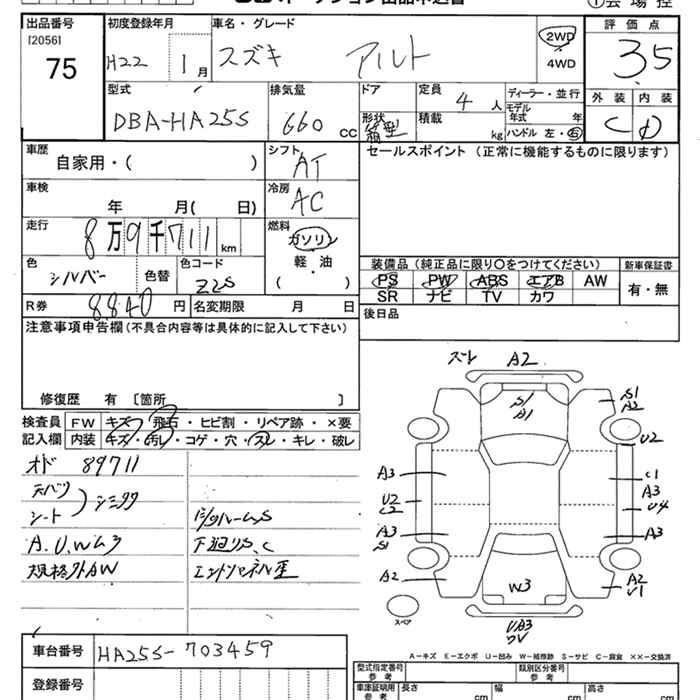 出品番号
[2056]
75
初度登録年月
H22 1月
車名・グレード
スズキ アルト
2WD
4WD
評価点
3.5
外装 内装
C D
型式
DBA-HA25S
排気量
660 CC
ドア
形状
箱型
定員
4 人
積載
kg
ディーラー・並行
モデル
年式 年
ハンドル 左・右
車歴
自家用・( )
シフト
AT
セールスポイント (正常に機能するものに限ります)
車検
年 月( 日)
冷房
AC
走行
8万9千711 km
燃料
ガソリン
軽・油
( )
色
シルバー
色替
色コード
Z2S
装備品 (純正品に限り○をつけてください)
新車保証書
PS PW ABS エアB AW
SR ナビ TV カワ
有・無
R券
8840 円
名変期限 月 日
後日品
注意事項申告欄 (不具合内容等は具体的に記入して下さい)
修復歴 有 [箇所 ]
検査員
記入欄
FW キズ・飛石・ヒビ割・リペア跡・×要
内装 キズ・汚レ・コゲ・穴・スレ・キレ・破レ
オド 89711
テバリ
シート
シミタタ
A.U.Wム3
規格外AW
下廻りS、C
ズレ A2
S1
A1
S1
A2
U2
A3
C1
A3
U2
C2
U4
A3
S1
A3
A2
A2
U1
W3
UA3
スペア
A-キズ E-エクボ U-凹み W-補修跡 S-サビ C-腐食 ××-交換済
車台番号
HA25S-703459
登録番号
型式指定番号
参考
類別区分番号
参考
車庫証明用
参考
長さ cm
幅 cm
高さ cm